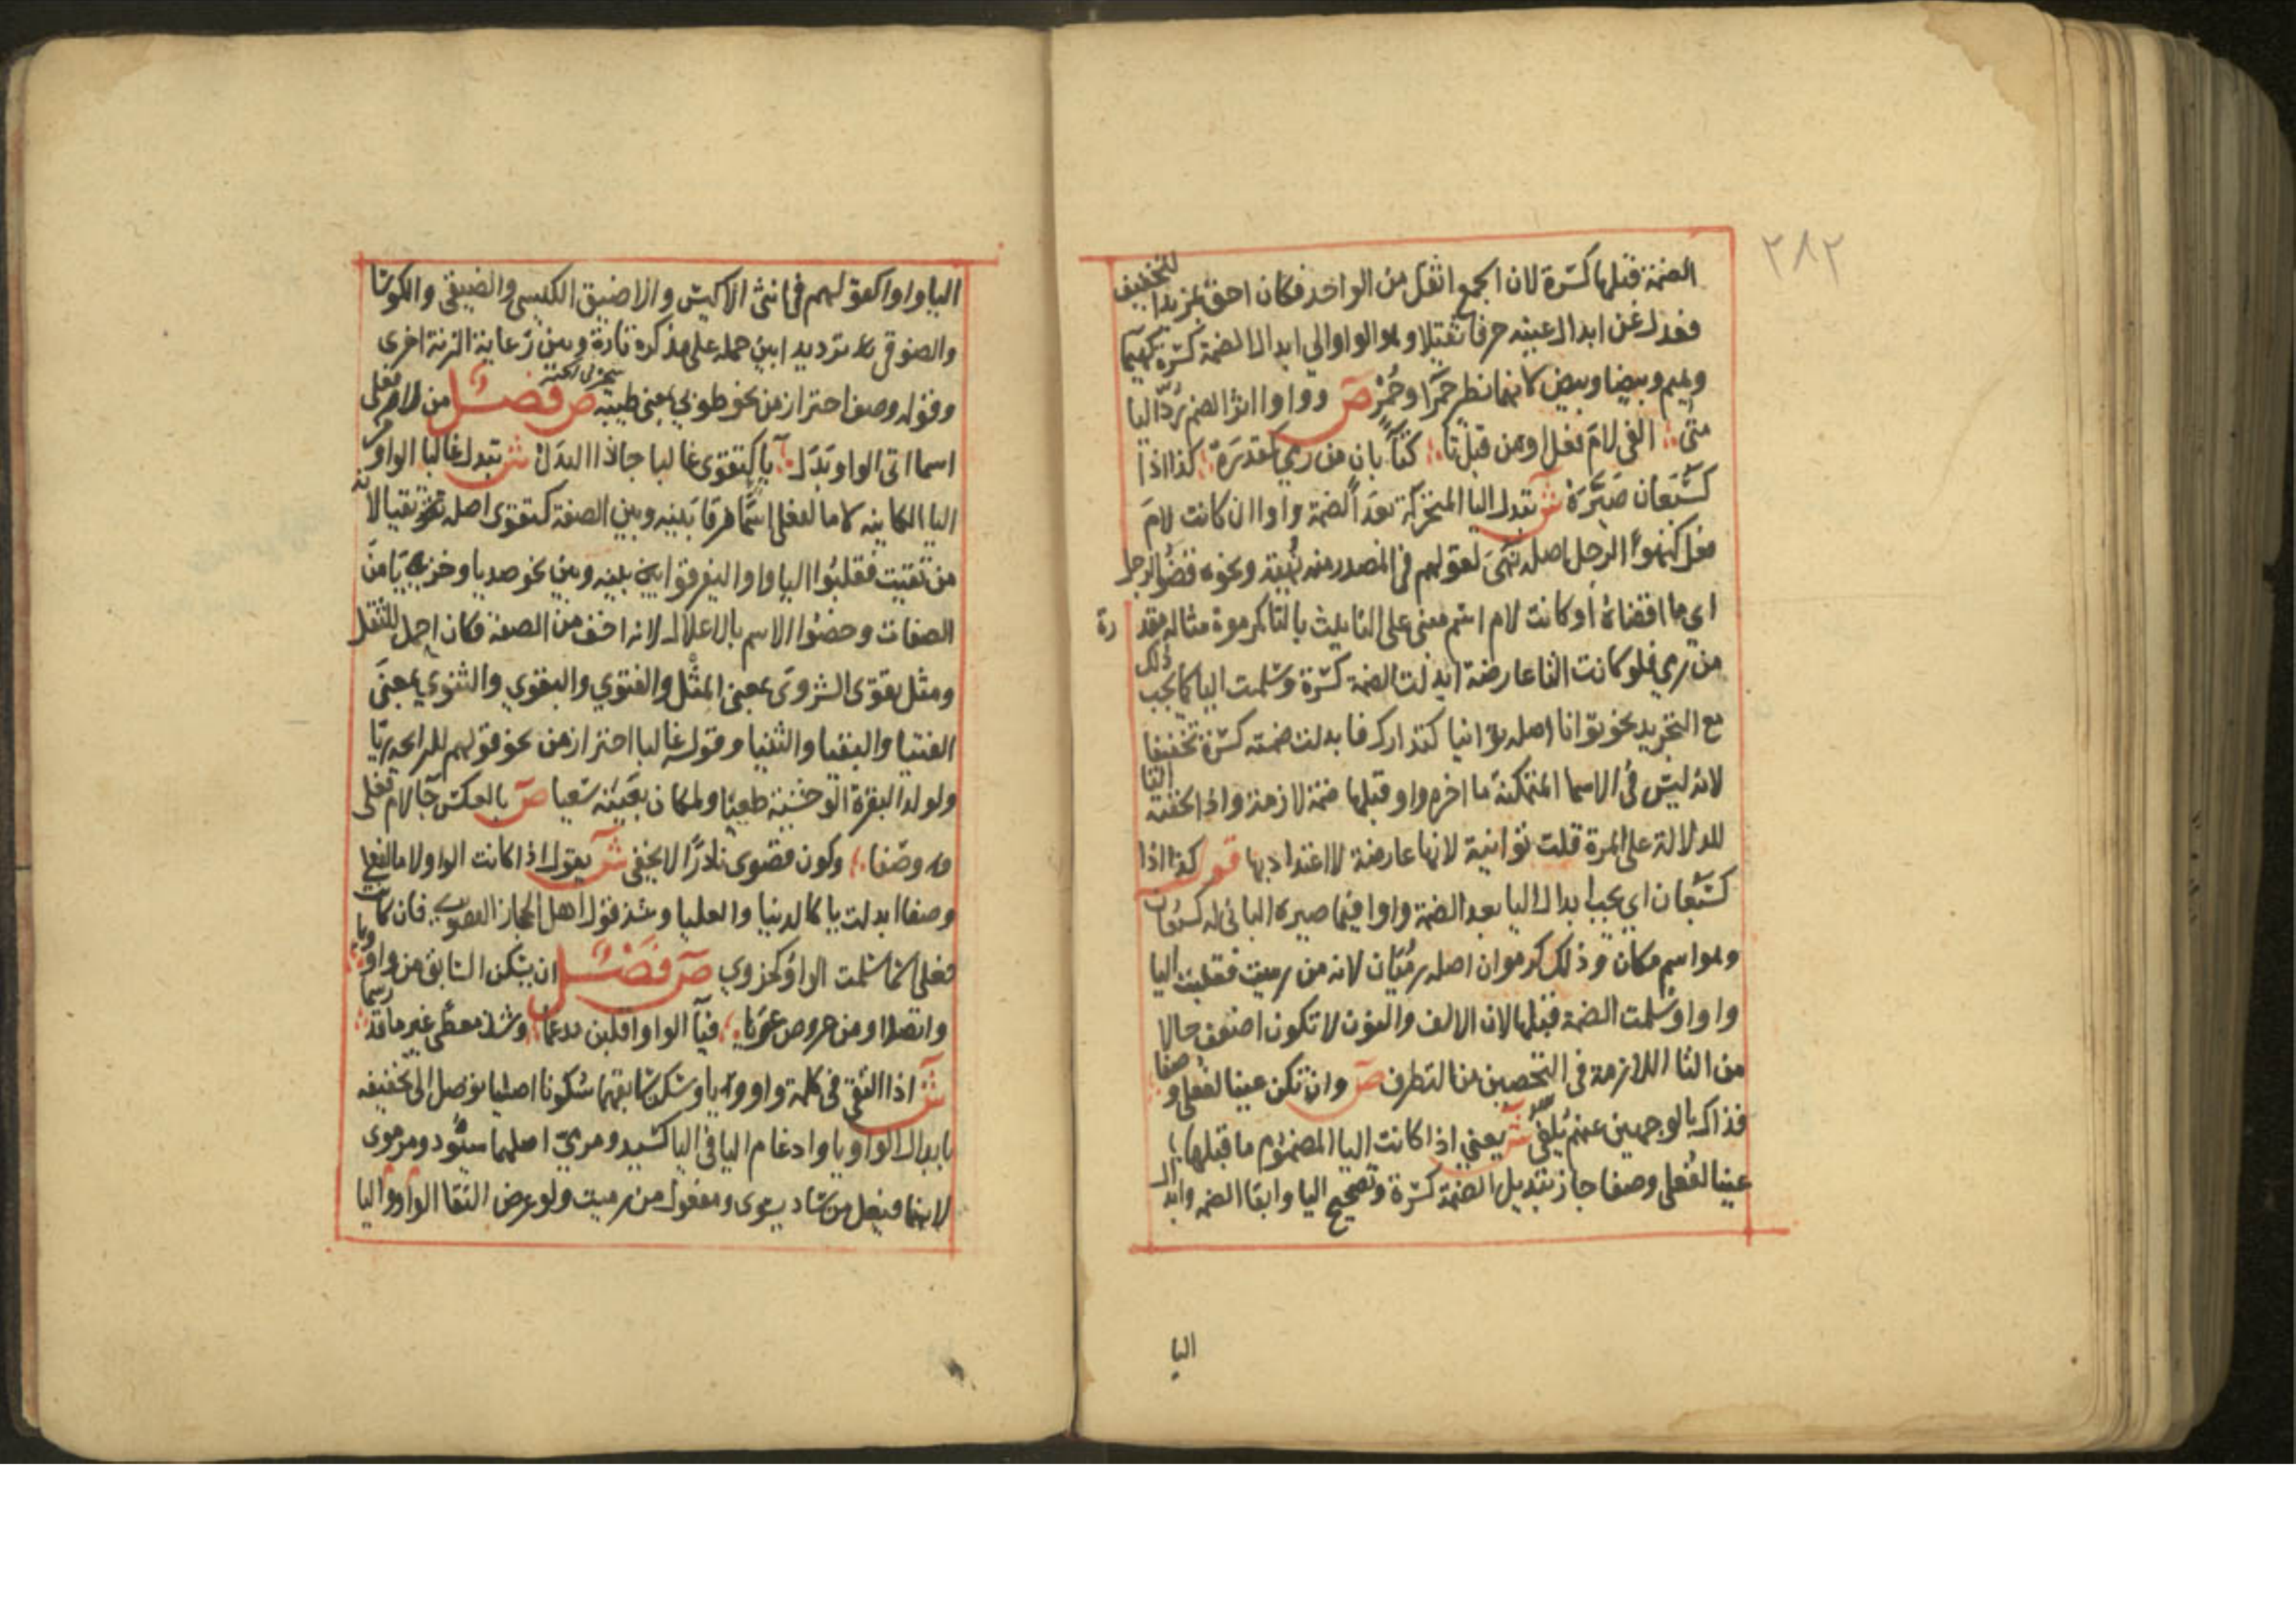 ٢٨٢
الضمة قبلها كسرة لان الجمع اثقل من الواحد فكان احق بمزيد التخفيف
فعدل عن ابدال عينه حرفا ثقيلا وهو الواو الي ابدال الضمة كسرة كهيما
وهيم وبيضا وبيض لانهما نظير حمرا وحمر ص وواوا اثر الضم رد اليا
متى الفى لام فعل او من قبل تا كتا بان من رمي كمقدره كذا اذا
كسبعان صيره ش تبدل اليا المتحركة بعد الضمة واوا ان كانت لام
فعل كنهو الرجل اصله نهي لقولهم في المصدر منه نهية ونحوه قضو الرجل
اي ما اقضاه او كانت لام اسم مبنى على التانيث بالتا كمرموة مثال مقدرة
من رمي فلو كانت التا عارضة ابدلت الضمة كسرة وسلمت اليا كما يجب ذلك
مع التجريد نحو توانا اصله توانيا كتدارك فابدلت ضمته كسرة تخفيفا
لانه ليس في الاسما المتمكنة ما اخره واو قبلها ضمة لازمة واذا لحقته التا
للدلالة على المرة قلت توانية لانها عارضة لا اعتداد بها قو كذا اذا
كسبعان اي يجب ابدال اليا بعد الضمة واوا فيما صيره الباني له كسبعان
وهو اسم مكان وذلك كرموان اصله رميان لانه من رميت فقلبت اليا
واوا وسلمت الضمة قبلها لان الالف والنون لا تكون اضعف حالا
من التا اللازمة في التحصين من التطرف ص وان تكن عينا لفعلى وصفا
فذاك بالوجهين عنهم يلفى ش يعني اذا كانت اليا المضموم ما قبلها
عينا لفعلى وصفا جاز تبديل الضمة كسرة وتصحيح اليا وابقا الضمه وابدال
اليا
اليا واوا كقولهم في انثى الاكيس والاضيق الكيسى والضيقى والكوسا
والضوقى بلا ترديد ابين حمله على مذكره تارة وبين رعاية الزنة اخرى
وقوله وصفا احتراز من نحو طوبي بمعنى طيبة ص فصل من لام فعلى
اسما اتى الواو بدل يا كتقوى غالبا جا ذا البدل ش تبدل غالبا الواو من
اليا الكاينه لاما لفعلى اسما فرقا بينه وبين الصفة كتقوى اصله تقيا لانه
من تقيت فقلبوا اليا واوا ليفرقوا بينه وبين نحو صديا وخزيا من
الصفات وخصوا الاسم بالاعلال لانه اخف من الصفة فكان احمل للثقل
ومثل تقوى الشروى بمعنى المثل والفتوي والبقوي والثنوي بمعنى
الفتيا والبقيا والثنيا وقوله غالبا احتراز من نحو قولهم للرايحه ريا
ولولد البقرة الوحشية طغيا ولمكان بعينه سعيا ص بالعكس جا لام فعلى
وصفا وكون قصوى نادرا لا يخفى ش يقول اذا كانت الواو لاما لفعلى
وصفا ابدلت يا كالدنيا والعليا وشذ قول اهل الحجاز القصوى فان كانت
فعلى اسما سلمت الواو كحزوي ص فصل ان يسكن السابق من واو ويا
واتصلا ومن عروض عريا فيا الواو اقلبن مدغما وشذ معطى غير ما قد رسما
ش اذا التقى في كلمة واو ويا وسكن سابقهما سكونا اصليا توصل الى تخفيفه
بابدال الواو يا وادغام اليا في اليا كسيد ومرمي اصلهما سيود ومرموى
لانهما فيعل من ساد يسود ومفعول من رميت ولو عرض التقا الواو واليا